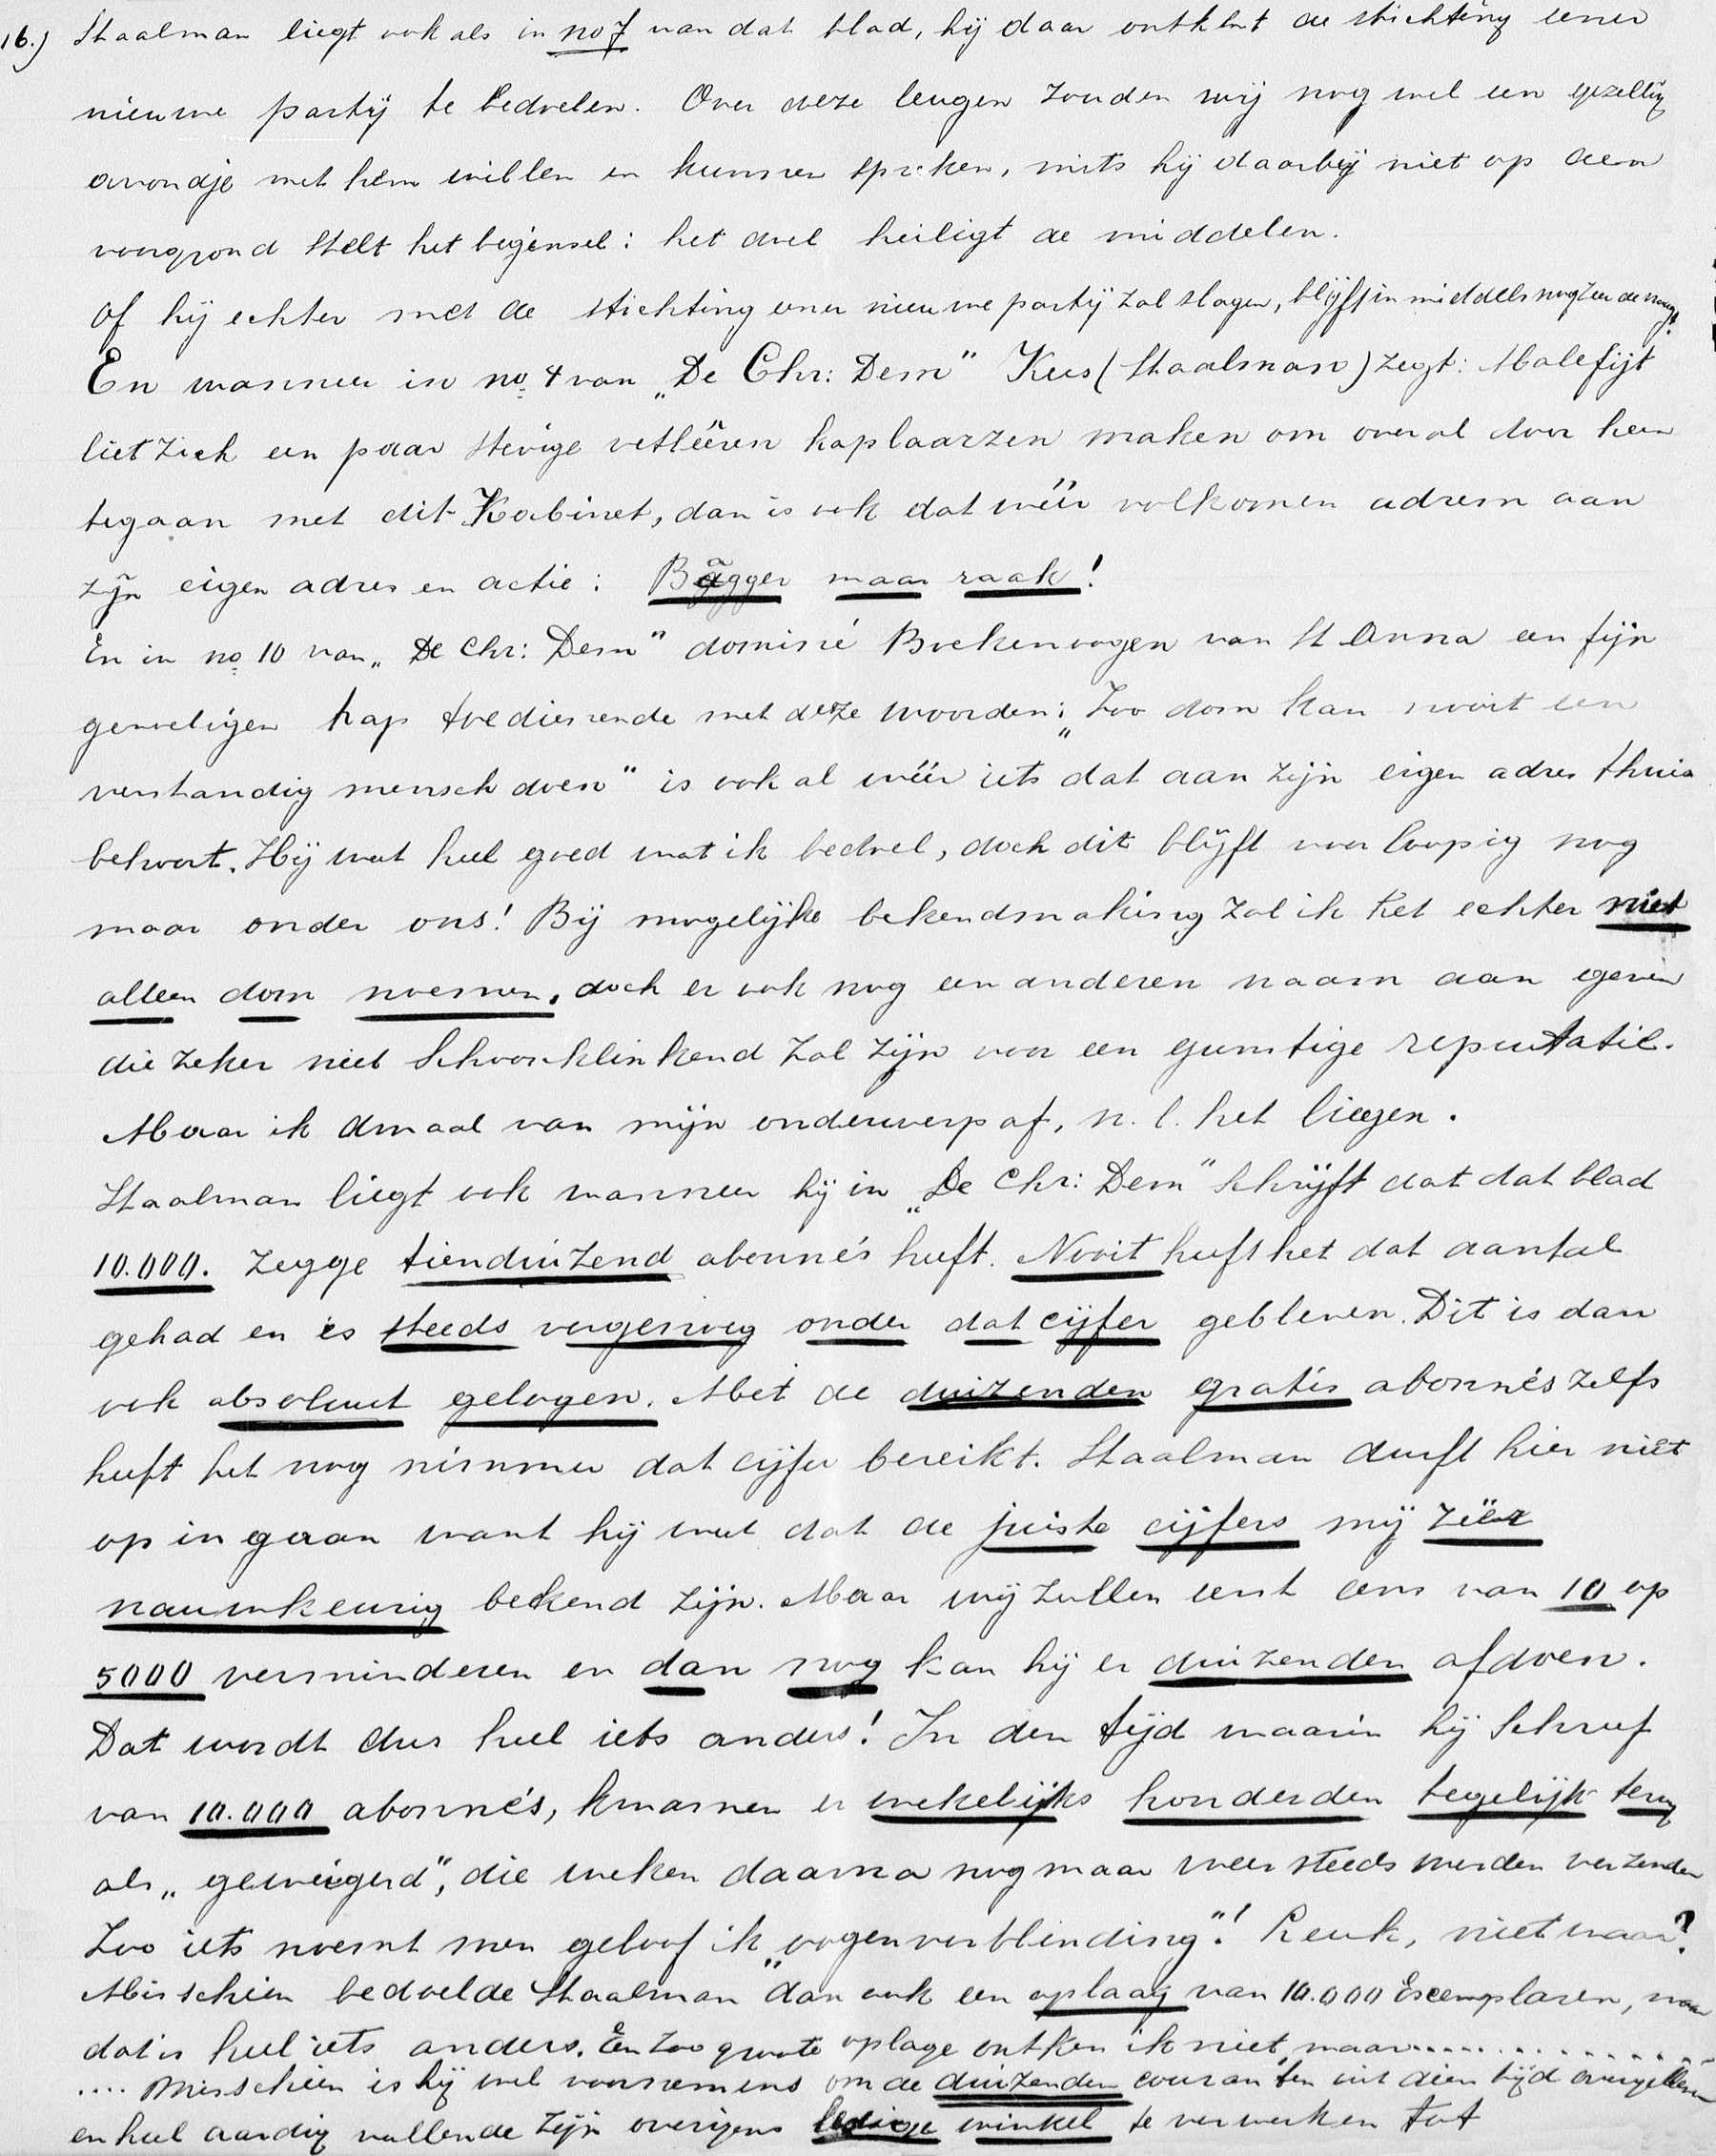 16.) Staalman liegt ook als in no 7 van dat blad, hij daar ontkent de stichting eener
nieuwe partij te bedoelen. Over deze leugen zouden wij nog wel een gezellig
avondje met hem willen en kunnen spreken, mits hij daarbij niet op den
voorgrond stelt het beginsel: het doel heiligt de middelen.
Of hij echter met de stichting eener nieuwe partij zal slagen, blijft inmiddels nog zeer de vraag!
En wanneer in no. 4 van „De Chr: Dem" Kees (Staalman) zegt: Malefijt
liet zich een paar stevige vetleêren kaplaarzen maken om overal door heen
tegaan met dit Kabinet, dan is ook dat wéér volkomen adrem aan
zijn eigen adres en actie: Bagger maar raak!
En in no. 10 van „De Chr: Dem" dominé Boekenoogen van St Anna een fijn
gevoeligen hap toedienende met deze woorden: „Zoo dom kan nooit een
verstandig mensch doen" is ook al wéér iets dat aan zijn eigen adres thuis
behoort. Hij weet heel goed wat ik bedoel, doch dit blijft voorloopig nog
maar onder ons! Bij mogelijke bekendmaking zal ik het echter niet
alleen dom noemen, doch er ook nog een anderen naam aan geven
die zeker niet schoonklinkend zal zijn voor een gunstige reputatie.
Maar ik dwaal van mijn onderwerp af, n.l. het liegen.
Staalman liegt ook wanneer hij in „De Chr: Dem" schrijft dat dat blad
10.000. zegge tienduizend abonné's heeft. Nooit heeft het dat aantal
gehad en is steeds vergenoeg onder dat cijfer gebleven. Dit is dan
ook absoluut gelogen. Met de duizenden gratis abonnés zelfs
heeft het nog nimmer dat cijfer bereikt. Staalman durft hier niet
op in gaan want hij weet dat de juiste cijfers mij zéér
nauwkeurig bekend zijn. Maar wij zullen eerst eens van 10 op
5000 verminderen en dan nog kan hij er duizenden afdoen.
Dat wordt dus heel iets anders! In den tijd waarin hij schreef
van 10.000 abonné's, kwamen er wekelijks honderden tegelijk terug
als „geweigerd", die weken daarna nog maar weer steeds werden verzonden
Zoo iets noemt men geloof ik „oogenverblinding"! Leuk, niet waar?
Misschien bedoelde Staalman dan ook een oplaag van 10.000 Exemplaren, maar
dat is heel iets anders. En zoo groote oplage ontken ik niet, maar..............
.... misschien is hij wel voornemens om de duizenden couranten uit dien tijd overgebleven
en heel aardig vullende zijn overigens ledige winkel te verwerken tot